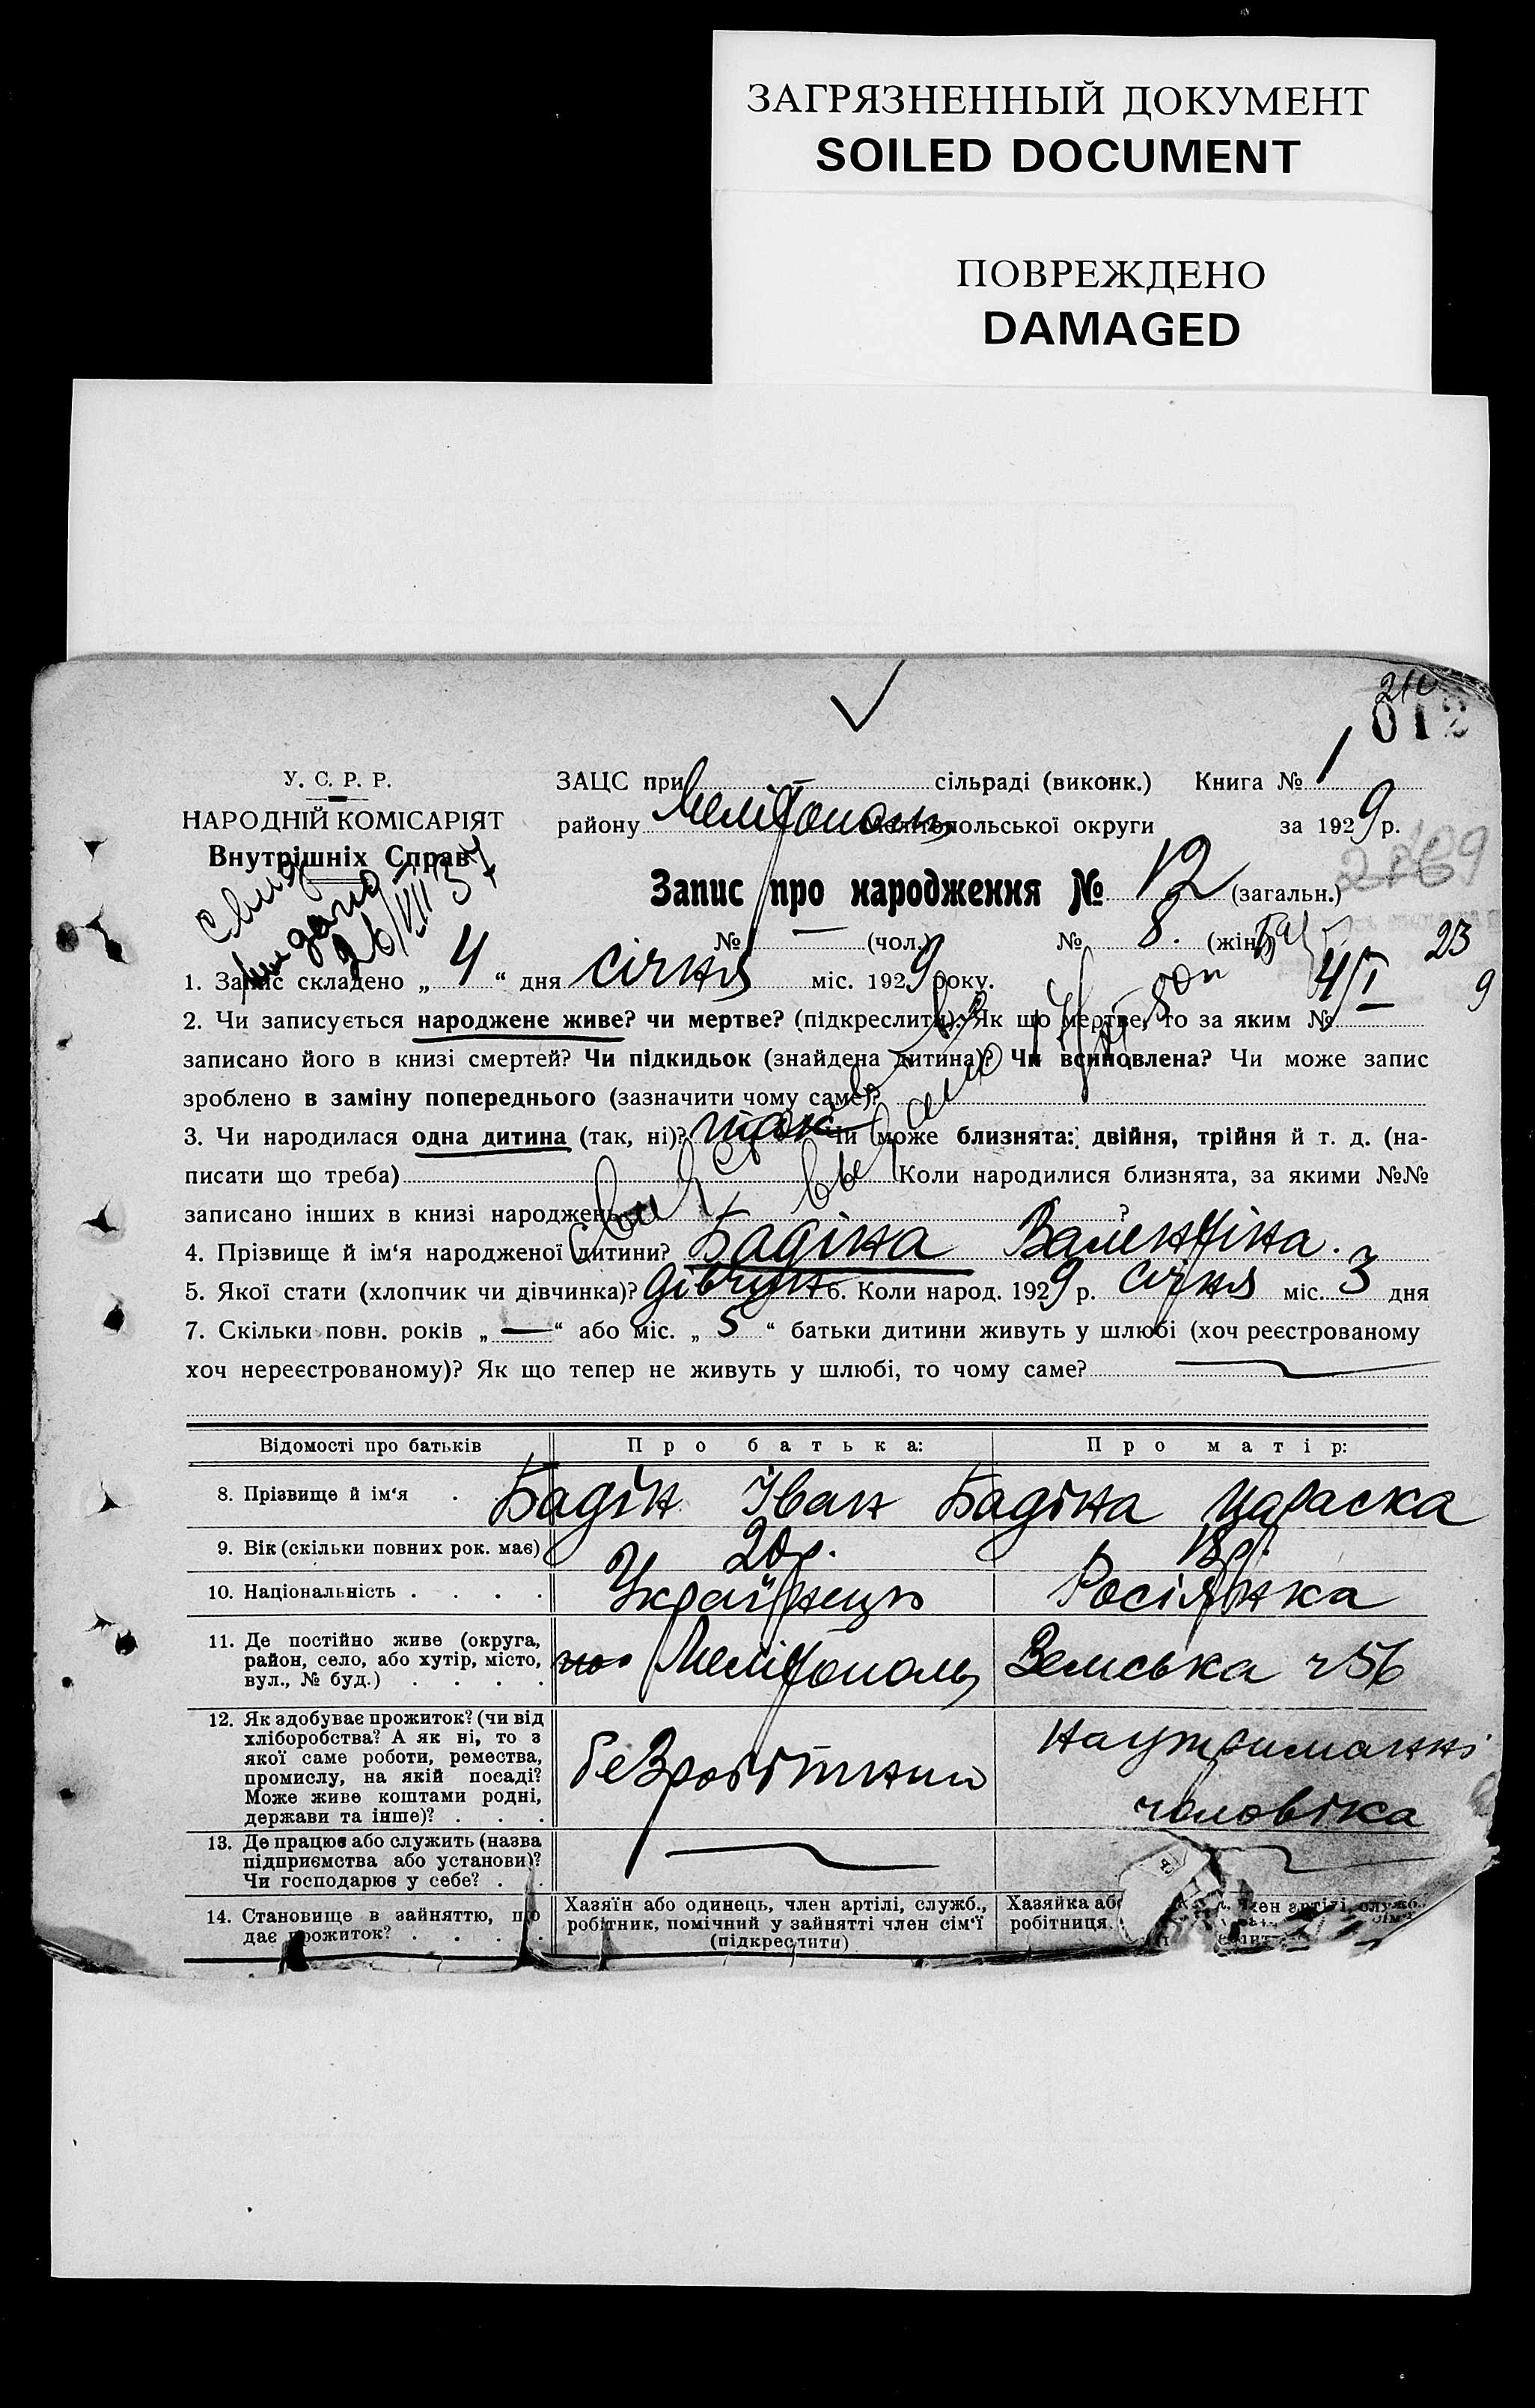 ЗАГРЯЗНЕННЫЙ ДОКУМЕНТ
SOILED DOCUMENT
ПОВРЕЖДЕНО
DAMAGED
012
У. С. Р. Р.
НАРОДНІЙ КОМІСАРІЯТ
Внутрішніх Справ
26/VII 37
ЗАЦС при сільраді (виконк.) Книга № 1
району Мелітополь Мелітопольської округи за 1929 р.
Запис про народження № 12 (загальн.)
№ — (чол.) № 8. (жін.)
4/I 23
9
1. Запис складено „ 4 “ дня січня міс. 1929 року.
2. Чи записується народжене живе? чи мертве? (підкреслити). Як що мертве, то за яким №
записано його в книзі смертей? Чи підкидьок (знайдена дитина)? Чи всиновлена? Чи може запис
зроблено в заміну попереднього (зазначити чому саме)?
3. Чи народилася одна дитина (так, ні)? так Чи може близнята: двійня, трійня й т. д. (на-
писати що треба) Коли народилися близнята, за якими №№
записано інших в книзі народжень ?
4. Прізвище й ім‘я народженої дитини? Бадіна Валентіна.
5. Якої стати (хлопчик чи дівчинка)? дівчина 6. Коли народ. 1929 р. січня міс. 3 дня
7. Скільки повн. років „ — “ або міс. „ 5 “ батьки дитини живуть у шлюбі (хоч реєстрованому
хоч нереєстрованому)? Як що тепер не живуть у шлюбі, то чому саме?
Відомості про батьків Про батька: Про матір:
8. Прізвище й ім‘я . Бадін Іван Бадіна Параска
9. Вік (скільки повних рок. має) 20 р. 18 р.
10. Національність . . . . Українець Росіянка
11. Де постійно живе (округа,
район, село, або хутір, місто,
вул., № буд.) . . . .
Мелітополь Земська 56
12. Як здобуває прожиток? (чи від
хліборобства? А як ні, то з
якої саме роботи, ремества,
промислу, на якій посаді?
Може живе коштами родні,
держави та інше)? . . .
безробітний
на утриманні
чоловіка
13. Де працює або служить (назва
підприємства або установи)?
Чи господарює у себе? . .
14. Становище в зайняттю, що
дає прожиток? . . . .
Хазяїн або одинець, член артілі, служб.,
робітник, помічний у зайнятті член сім‘ї
(підкреслити)
Хазяйка або член артілі, служб.
робітниця